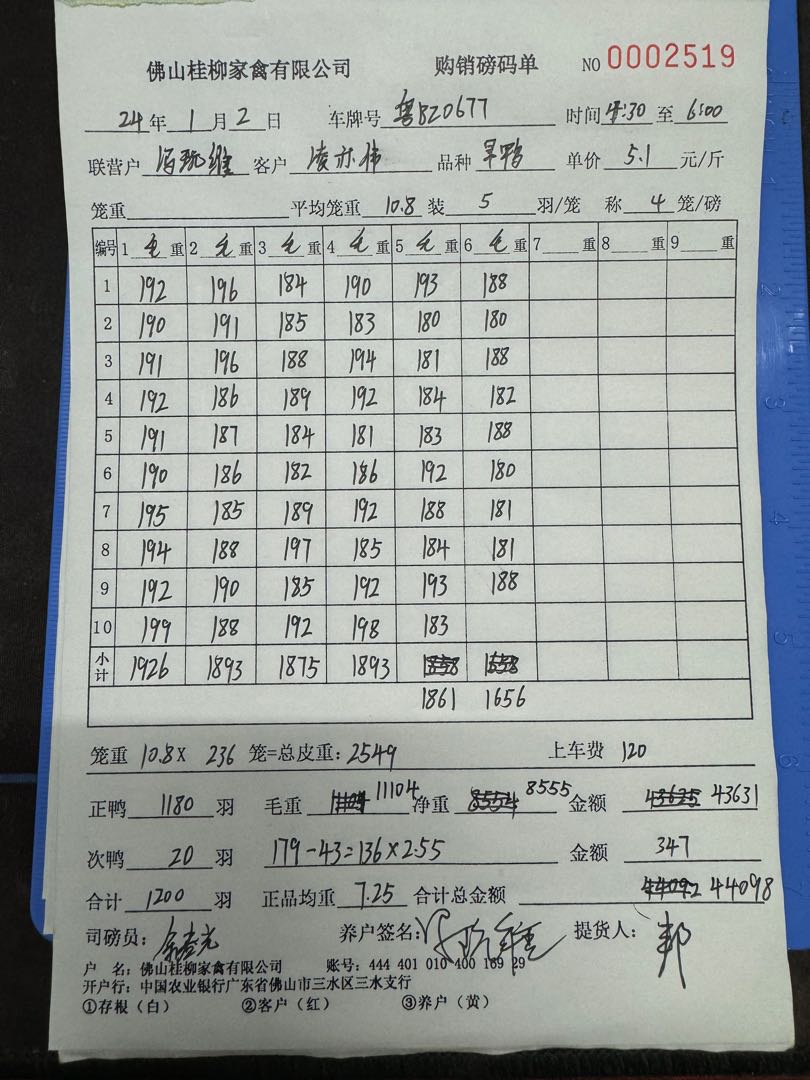 佛山桂柳家禽有限公司 购销磅码单 NO 0002519
24年1月2日 车牌号 粤BZ0677 时间 4:30 至 6:00
联营户 客户 凌亦伟 品种 旱鸭 单价 5.1 元/斤
笼重 平均笼重 10.8 装 5 羽/笼 称 4 笼/磅
编号 1 毛 重 2 毛 重 3 毛 重 4 毛 重 5 毛 重 6 毛 重 7 重 8 重 9 重
1 192 196 184 190 193 188
2 190 191 185 183 180 180
3 191 196 188 194 181 188
4 192 186 189 192 184 182
5 191 187 184 181 183 188
6 190 186 182 186 192 180
7 195 185 189 192 188 181
8 194 188 197 185 184 181
9 192 190 185 192 193 188
10 199 188 192 198 183
小计 1926 1893 1875 1893 1858 1658
1861 1656
笼重 10.8 X 236 笼=总皮重: 2549 上车费 120
正鸭 1180 羽 毛重 11104 净重 8554 8555 金额 43625 43631
次鸭 20 羽 179-43=136×2.55 金额 347
合计 1200 羽 正品均重 7.25 合计总金额 44092 44098
司磅员: 养户签名: 提货人: 邦
户 名: 佛山桂柳家禽有限公司 账号: 444 401 010 400 169 29
开户行: 中国农业银行广东省佛山市三水区三水支行
①存根（白） ②客户（红） ③养户（黄）